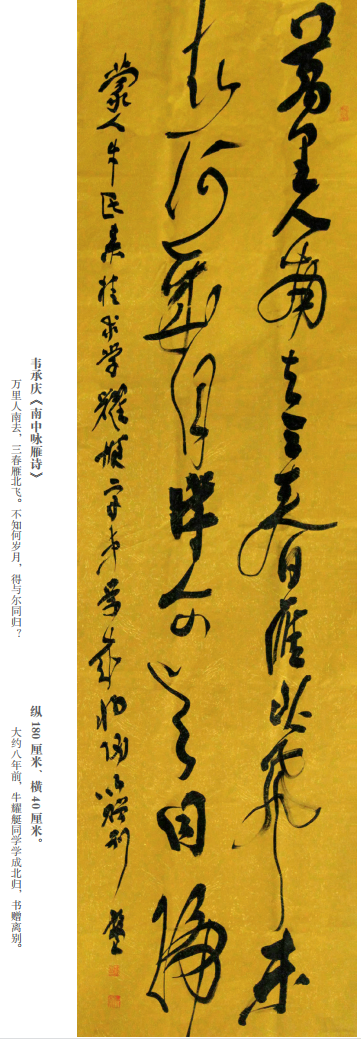 萬里人南去三春日雁北飛未
知何歲月與尔同歸
蒙人牛氏求学耀学成归以赠别
韦承庆《南中咏雁诗》
万里人南去，三春雁北飞。不知何岁月，得与尔同归？
纵 180 厘米、横 40 厘米。
大约八年前，牛耀艇同学学成北归，书赠离别。